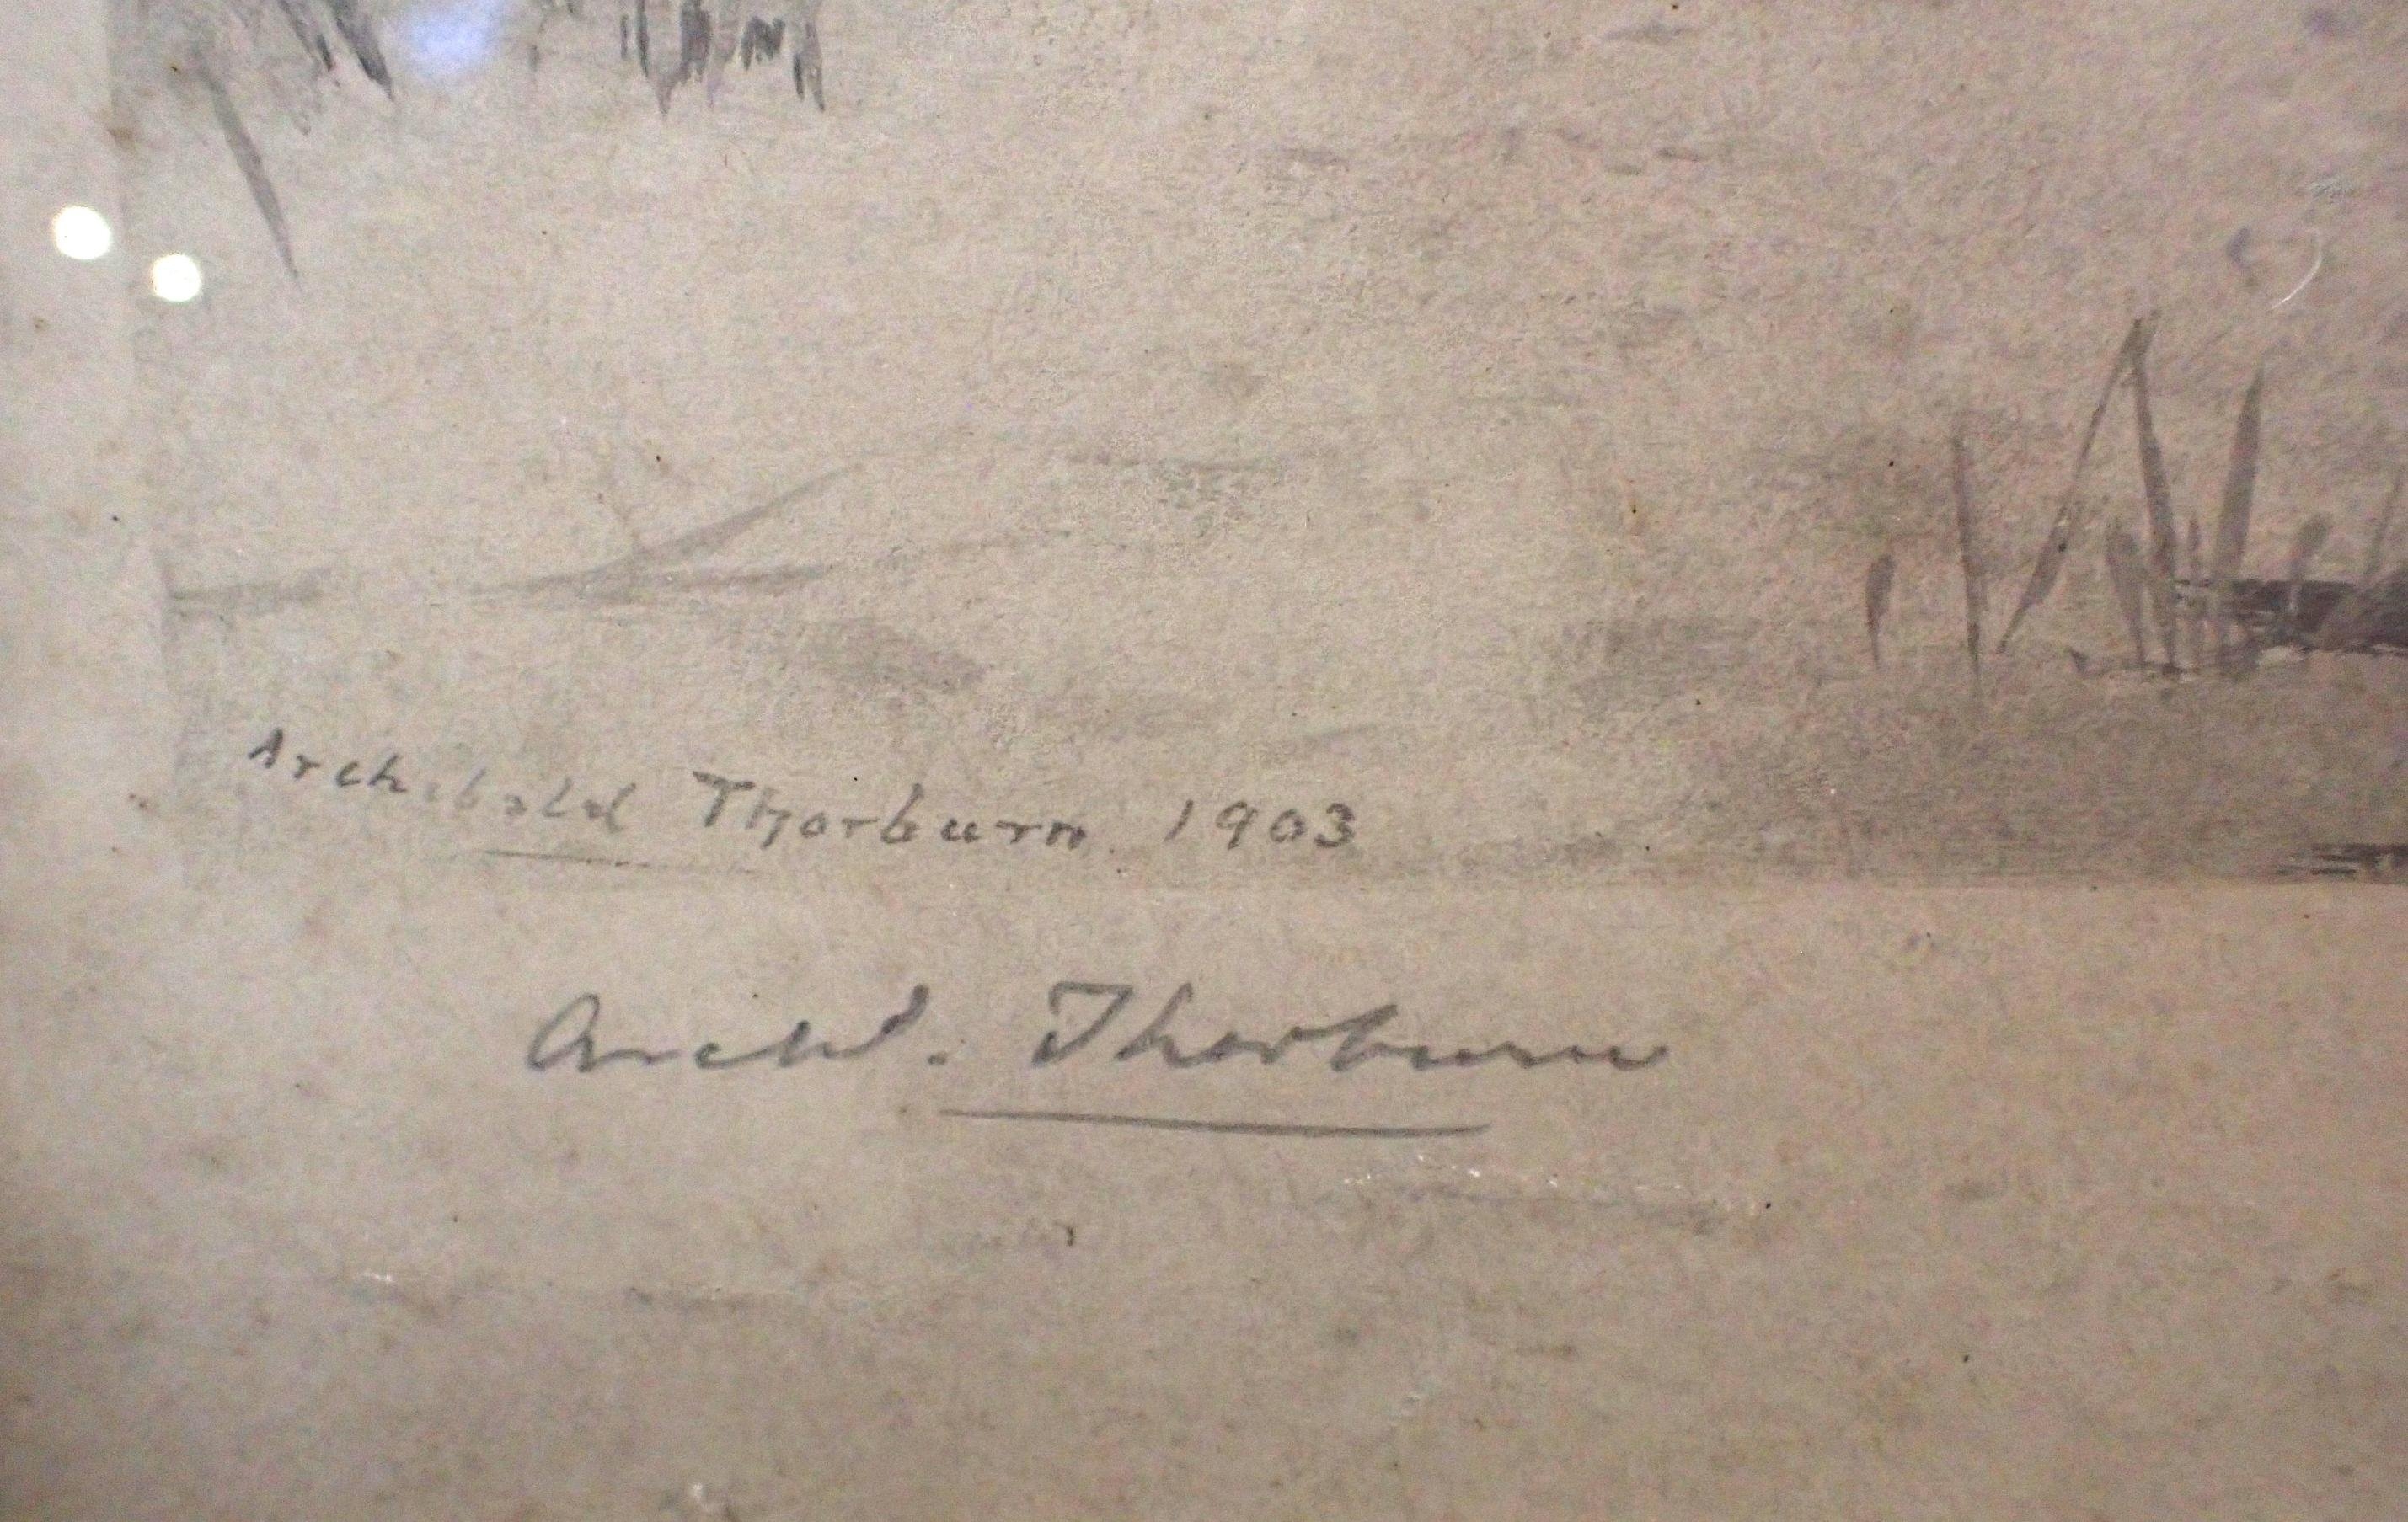 Archibald Thorburn. 1903
Archd. Thorburn